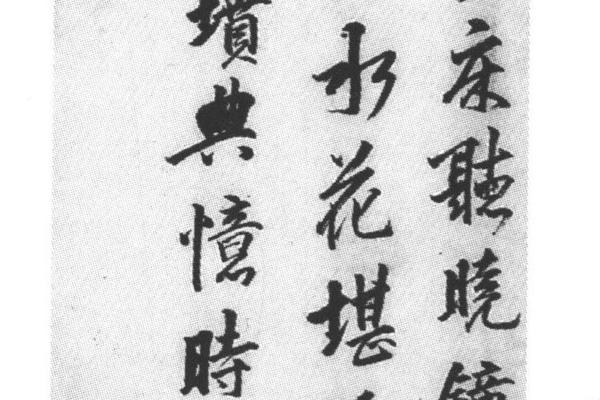 床聽曉鐘
水花堪
墳典憶時